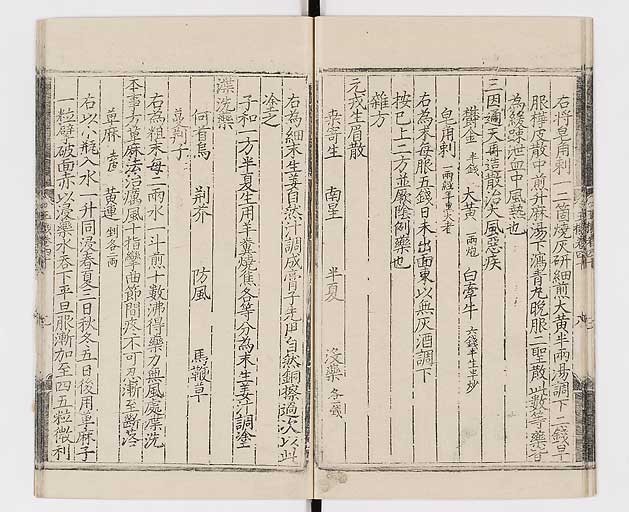 右將皂角刺一二箇燒灰研細煎大黃半兩湯調下二錢早
服樺皮散中煎升麻湯下瀉青丸晚服二聖散此數等藥皆
為緩踈泄血中風熱也
三因彌天再造散治大風惡疾
鬱金 半錢 大黃 一兩炮 白牽牛 六錢半生半炒
皂角刺 一兩經年黑大者
右為末每服五錢日未出面東以無灰酒調下
按已上二方並厥陰例藥也
雜方
元戎生眉散
桒寄生 南星 半夏 沒藥 各二戔
右為細末生姜自然汁調成膏子先用自然銅擦過次以此
塗之
子和一方半夏生用羊糞燒焦各等分為末生姜汁調塗
渫洗藥
何首烏 荆芥 防風 馬鞭草
蔓荆子
右為粗末每一兩水一斗煎十數沸得藥力無風處渫洗
本事方萆麻法治癘風十指攣曲節間疼不可忍漸至斷落
萆麻 去皮 黃連 剉各一兩
右以小瓶入水一升同浸春夏三日秋冬五日後用萆麻子
一粒擘破面東以浸藥水吞下平旦服漸加至四五粒微利